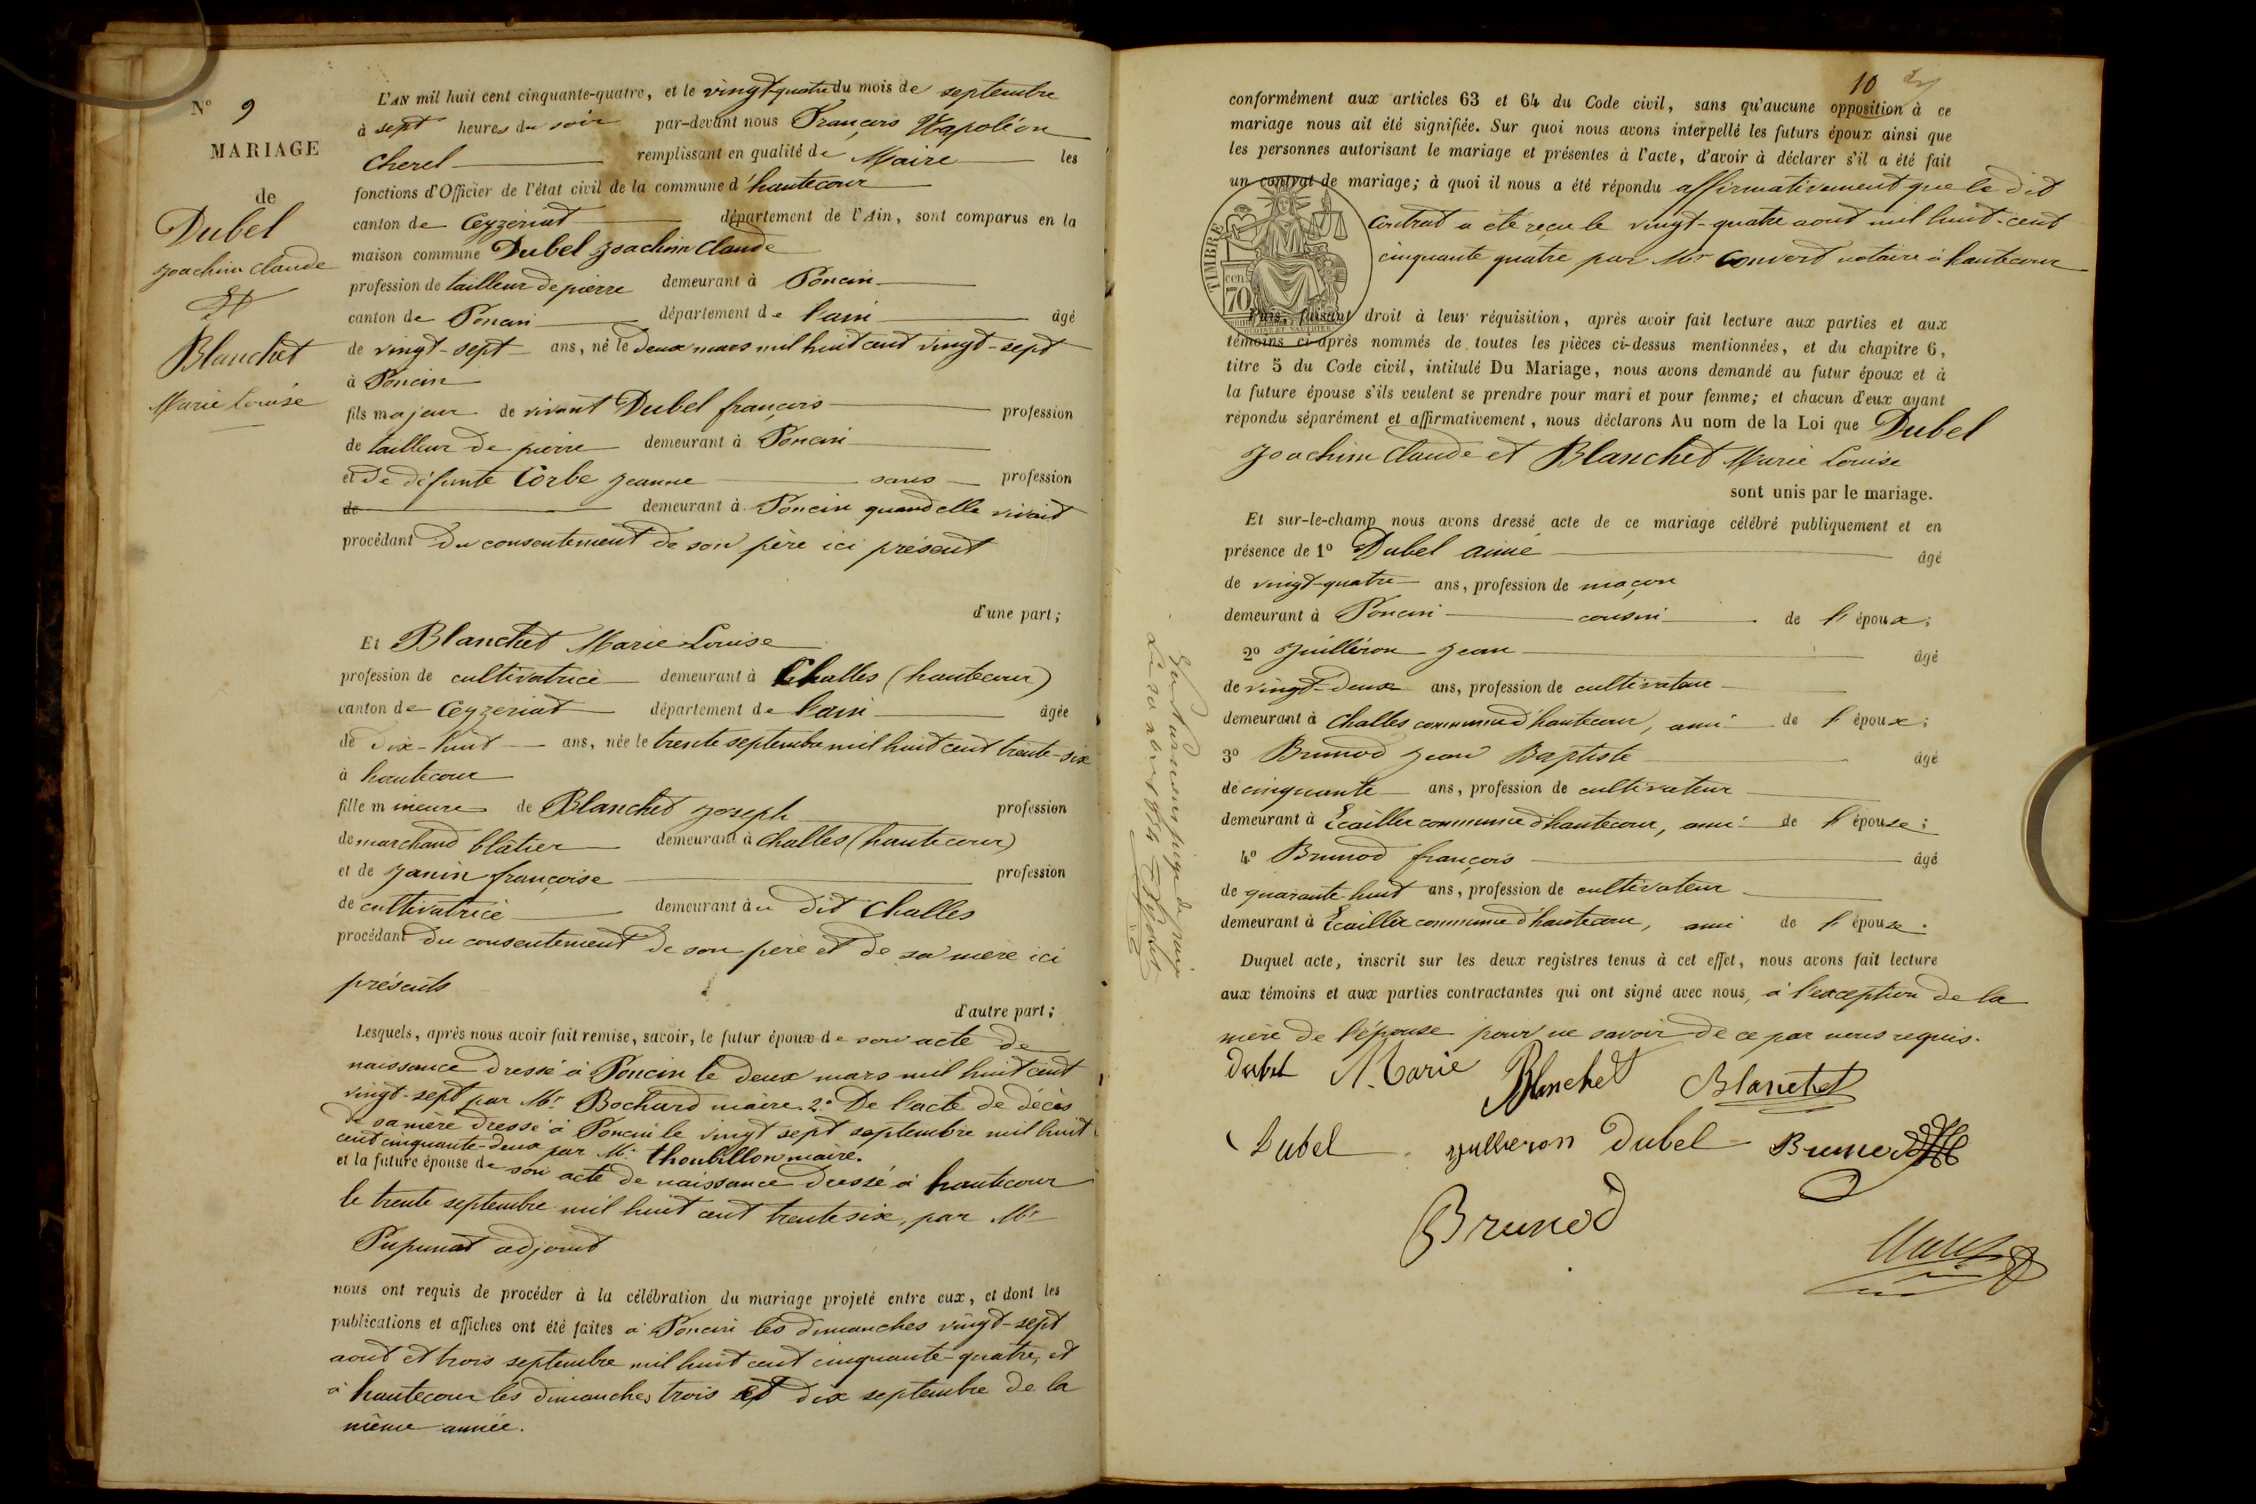 N° 9
MARIAGE
de
Dubel
Joachim Claude
Et
Blanchet
Marie Louise
L'AN mil huit cent cinquante-quatre, et le vingt-quatre du mois de septembre
à sept heures du soir par-devant nous François Napoléon
Cherel remplissant en qualité de Maire les
fonctions d'Officier de l'état civil de la commune d'hautecour
canton de Ceyzeriat département de l'Ain, sont comparus en la
maison commune Dubel Joachim Claude
profession de tailleur de pierre demeurant à Poncin
canton de Poncin département de l'ain âgé
de vingt-sept ans, né le deux mars mil huit cent vingt-sept
à Poncin
fils majeur de vivant Dubel françois profession
de tailleur de pierre demeurant à Poncin
et de défunte Corbe Jeanne sans profession
de demeurant à Poncin quand elle vivait
procédant du consentement de son père ici présent
d'une part;
Et Blanchet Marie Louise
profession de cultivatrice demeurant à Challes (hautecour)
canton de Ceyzeriat département de l'ain âgée
de dix-huit ans, née le trente septembre mil huit cent trente-six
à hautecour
fille mineure de Blanchet Joseph profession
de marchand blâtier demeurant à Challes (hautecour)
et de Janin françoise profession
de cultivatrice demeurant au dit Challes
procédant du consentement de son père et de sa mère ici
présents
d'autre part;
Lesquels, après nous avoir fait remise, savoir, le futur époux de son acte de
naissance dressé à Poncin le deux mars mil huit cent
vingt-sept par Mr Bochard maire. 2° De l'acte de décès
de sa mère dressé à Poncin le vingt sept septembre mil huit
cent cinquante-deux par Mr thoubillon maire.
et la future épouse de son acte de naissance dressé à hautecour
le trente septembre mil huit cent trente six, par Mr
Pupunat adjoint
nous ont requis de procéder à la célébration du mariage projeté entre eux, et dont les
publications et affiches ont été faites à Poncin les dimanches vingt-sept
aout et trois septembre mil huit cent cinquante-quatre, et
à hautecour les dimanches trois et dix septembre de la
même année.
10
conformément aux articles 63 et 64 du Code civil, sans qu'aucune opposition à ce
mariage nous ait été signifiée. Sur quoi nous avons interpellé les futurs époux ainsi que
les personnes autorisant le mariage et présentes à l'acte, d'avoir à déclarer s'il a été fait
un contrat de mariage; à quoi il nous a été répondu affirmativement que le dit
contrat a été reçu le vingt-quatre aout mil huit-cent
cinquante quatre par Mr Convert notaire à hautecour
TIMBRE
cent
70
Puis, faisant droit à leur réquisition, après avoir fait lecture aux parties et aux
témoins ci-après nommés de toutes les pièces ci-dessus mentionnées, et du chapitre 6,
titre 5 du Code civil, intitulé Du Mariage, nous avons demandé au futur époux et à
la future épouse s'ils veulent se prendre pour mari et pour femme; et chacun d'eux ayant
répondu séparément et affirmativement, nous déclarons Au nom de la Loi que Dubel
Joachim Claude et Blanchet Marie Louise
sont unis par le mariage.
Et sur-le-champ nous avons dressé acte de ce mariage célébré publiquement et en
présence de 1° Dubel aimé âgé
de vingt-quatre ans, profession de maçon
demeurant à Poncin cousin de l'époux;
2° Juilléron Jean âgé
de vingt-deux ans, profession de cultivateur
demeurant à Challes commune d'hautecour, ami de l'époux;
3° Brunod Jean Baptiste âgé
de cinquante ans, profession de cultivateur
demeurant à Ecaillier commune d'hautecour, ami de l'épouse;
4° Brunod françois âgé
de quarante-huit ans, profession de cultivateur
demeurant à Ecaillier commune d'hautecour, ami de l'épouse.
Duquel acte, inscrit sur les deux registres tenus à cet effet, nous avons fait lecture
aux témoins et aux parties contractantes qui ont signé avec nous, à l'exception de la
mère de l'épouse pour ne savoir de ce par nous requis.
dubel Marie Blanchet Blanchet
Dubel Julleron Dubel Brunod
Brunod